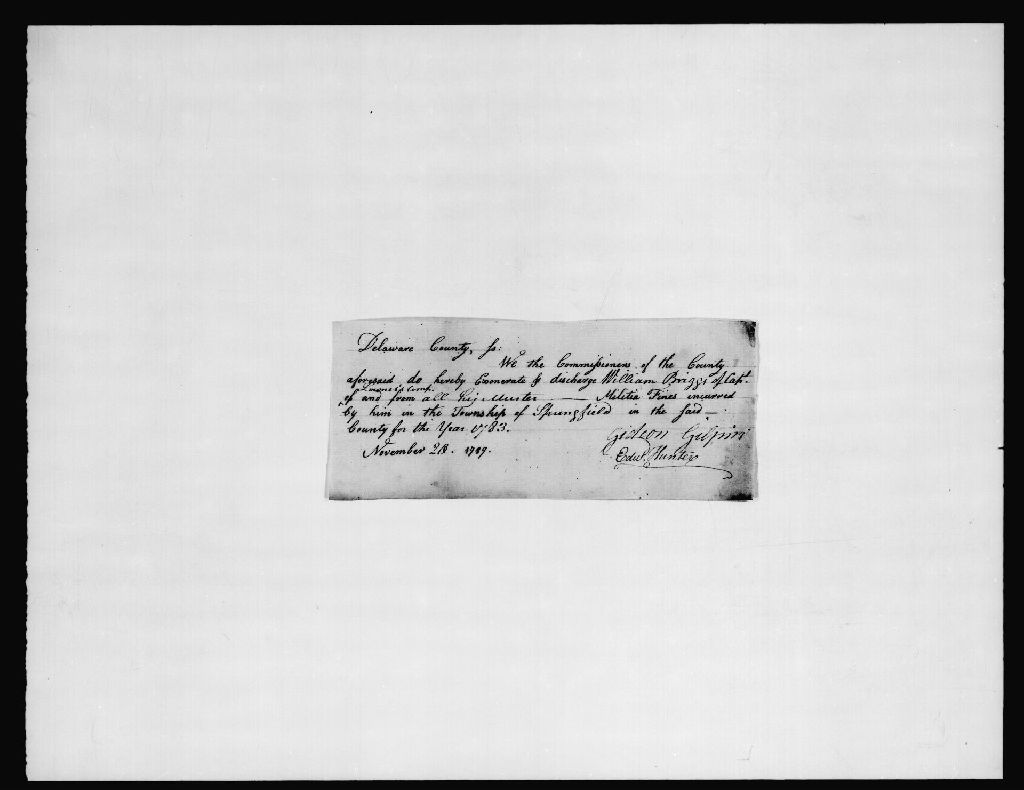 Delaware County, ss:
We the Commissioners of the County
aforesaid do hereby Exonerate & discharge William Briggs of Capt.
Comp.
of and from all his Muster Militia Fines incurred
by him in the Township of Springfield in the said
County for the Year 1783.
November 28. 1789.
Gideon Gilpin
Edwd. Hunter